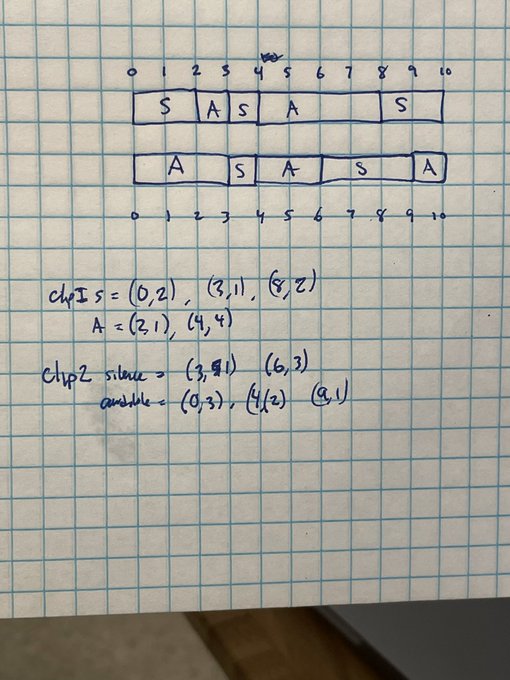 0 1 2 3 4 5 6 7 8 9 10
S A S A S
A S A S A
0 1 2 3 4 5 6 7 8 9 10
clip1 S = (0,2), (3,1), (8,2)
A = (2,1), (4,4)
clip2 silence = (3,1) (6,3)
audible = (0,3), (4,2) (9,1)